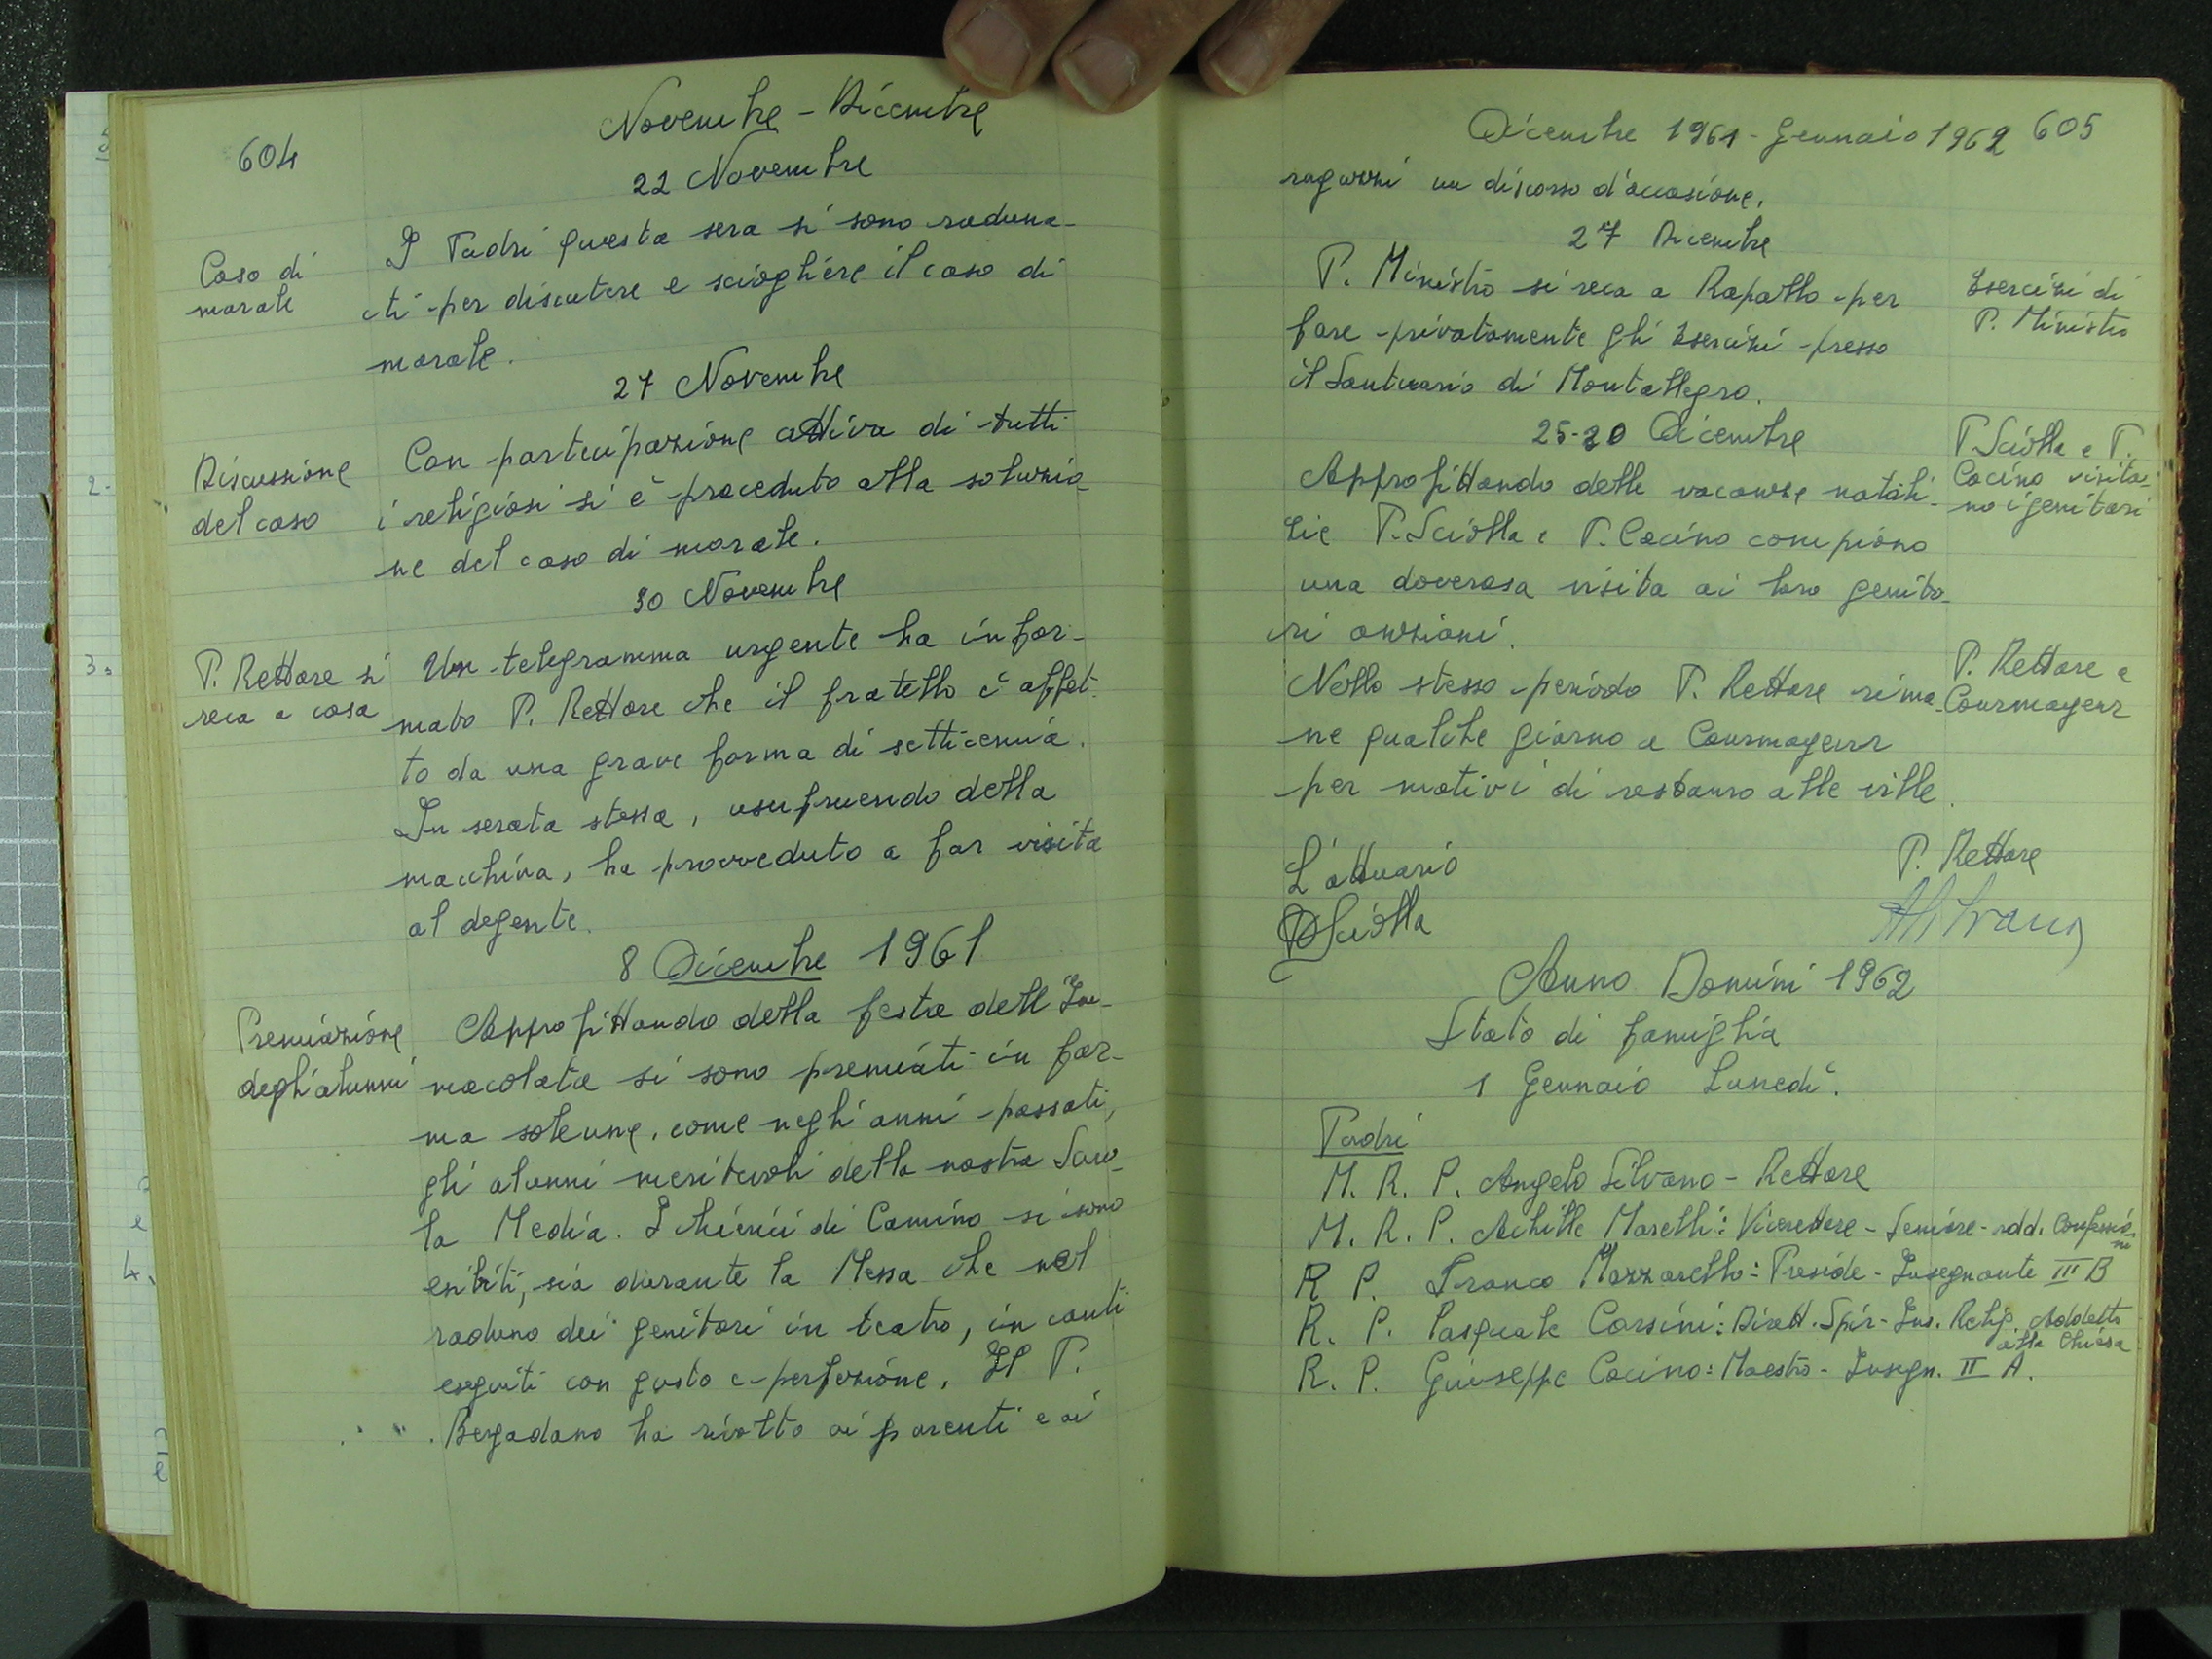 604
Novembre - Dicembre
22 Novembre
Caso di
morale
I Padri questa sera si sono raduna-
ti per discutere e sciogliere il caso di
morale.
27 Novembre
Discussione
del caso
Con partecipazione attiva di tutti
i religiosi si è proceduto alla soluzio-
ne del caso di morale.
30 Novembre
P. Rettore si
reca a casa
Un telegramma urgente ha infor-
mato P. Rettore che il fratello è affet-
to da una grave forma di setticemia.
In serata stessa, usufruendo della
macchina, ha provveduto a far visita
al degente.
8 Dicembre 1961
Premiazione
degli alunni
Approfittando della festa dell'Im-
macolata si sono premiati in for-
ma solenne, come negli anni passati,
gli alunni meritevoli della nostra Scuo-
la Media. I chierici di Camino si sono
esibiti, sia durante la Messa che nel
raduno dei genitori in teatro, in canti
eseguiti con gusto e perfezione. Il P.
Bergadano ha rivolto ai parenti e ai
Dicembre 1961 - Gennaio 1962 605
ragazzi un discorso d'occasione.
27 Dicembre
P. Ministro si reca a Rapallo per
fare privatamente gli Esercizi presso
il Santuario di Montallegro.
Esercizi di
P. Ministro
25-30 Dicembre
Approfittando delle vacanze natali-
zie P. Sciolla e P. Cocino compiono
una doverosa visita ai loro genito-
ri anziani.
P. Sciolla e P.
Cocino visita-
no i genitori
Nello stesso periodo P. Rettore rima-
ne qualche giorno a Courmayeur
per motivi di restauro alle ville.
P. Rettore a
Courmayeur
L'attuario
P. Sciolla
P. Rettore
Anno Domini 1962
Stato di famiglia
1 Gennaio Lunedì.
Padri
M. R. P. Angelo Silvano - Rettore
M. R. P. Achille Marelli: Vicerettore - Seniore - add. Confessio-
ni
R P. Franco Mazzarello: Preside - Insegnante III B
R. P. Pasquale Corsini: Dirett. Spir - Ins. Relig. Addetto
alla Chiesa
R. P. Giuseppe Cocino: Maestro - Insegn. II A.